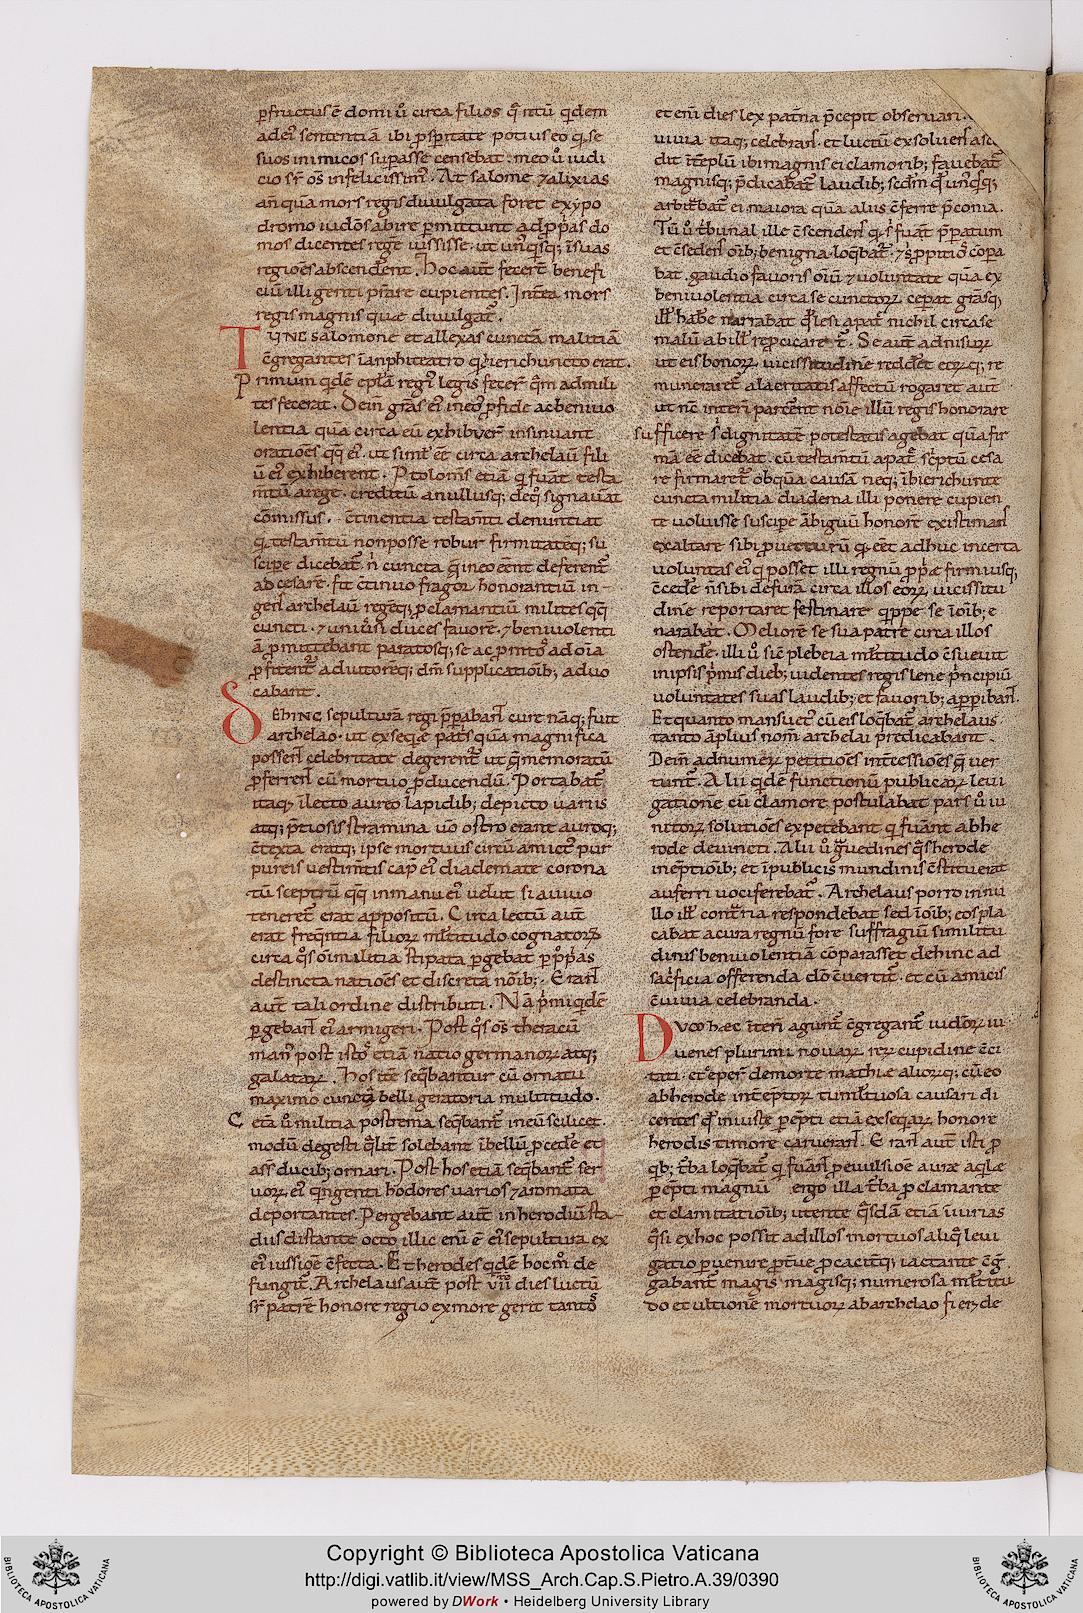 ꝑfructus ē domi ů circa filios q̄ ntū qdem
adeꝰ sententiā ibi ꝓsꝑitate potius eo q se
suos inimicos supasse censebat. meo ů iudi
cio sr̄ oīs infelicissimꝰ. At salome ⁊ alixias
an̄ quā mors regis diuulgata foret exypo
dromo iudōs abire ꝑmittunt ad ꝓp̄as do
mos dicentes regē iussisse. ut un̄qisq; ī suas
regiōes abscenderent. Hoc aut̄ fecer̄t benefi
ciū illi genti p̄stare cupientes. Interea mors
regis magnis quæ diuulgat̄.
TUNC salomone et allexas cunctā malitiā
c̄gregantes ī anphiteatro q ierichuncto erat.
Primum qdē eplā regꝰ legis fecer̄ qm̄ ad mili
tes fecerat. Dein gr̄as eꝰ in eos ꝓ fide ac beniuo
lentia quā circa eū exhibuer̄ insinuant
oratiōes qq̄ eꝰ. ut simlr̄ ēē circa archelaū fili
ū eꝰ exhiberent. Ptolomꝰs etiā q fuat̄ testa
m̄tū a rege. creditū anullusq; de q̄ signauat̄
cōmissus. c̄tinentia testam̄ti denuntiat
q testam̄tū non posse robur firmitateq; su
scipe dicebat̄ n̄ cuncta q̄ in eo ēent deferent̄
ad cesarē. fit c̄tinuo fragor honorantiū in-
gens archelaū regeq; ꝓclamantiū milites qq̄
cuncti. ⁊ uniūsi duces fauorē. ⁊ beniuolenti
ā ꝓmittebant paratosq; se ac ꝓmtoꝰ ad oīa
ꝓfitent̄ adiutoreq; dm̄ supplicatioīb; aduo
cabant.
DEHINC sepulturā regi p̄ꝑabant cure nāq; fuit
archelao. ut exseqiæ patꝰs quā magnifica
possent celebritate degerent̄ ut q̄ memoratū
ꝓferrent cū mortuo ꝓducendū. Portabat̄
itaq; ī lecto aureo lapidib; depicto uariis
atq; p̄tiosis stramina uō ostro erant auroq;
c̄texta eratq; ipse mortuus circū amictꝰ pur
pureis uestim̄tis cap̄ eꝰ diademate corona
tū sceptrū qq̄ in manu eꝰ uelut si a uiuo
teneret̄ erat appositū. Circa lectū aut̄
erat freqntia filioꝝ ml̄titudo cognatoꝝ
circa q̄s oīm militia stipata ꝑgebat ꝑ ꝓp̄as
destincta natiōes et discreta nōib;. Erant
aut̄ tali ordine distributi. Nā p̄mi qidē
ꝑgebant eꝰ armigeri. Post q̄s oīs theracū
manꝰ post istoꝰ etiā natio germanoꝝ atq;
galataꝝ. Hos itē seqbantur cū ornatu
maximo cuncta belli geratoria multitudo.
Cetā ů militia postrema. seqbant̄ in eū scilicet.
modū degesti qlit̄ solebant ī bellū ꝓcedē et
ass̄ ducib; ornari. Post hos etiā seqbant̄ ser
uoꝝ eꝰ qngenti hodores uarios ⁊ aromata
deportantes. Pergebant aut̄ in herodiū sta-
diis distante octo illic enī ē eꝰ sepultura ex
eꝰ iussiōe c̄fecta. Et herodes qdē hoc m̄ de
fungit̄. Archelaus aut̄ post vii dies luctū
sr̄ patrē honore regio ex more gerit tantoꝰ
et enī dies lex pat̄na p̄cepit obseruari.
uiuia itaq; celebrans. et luctū exsoluens asc
dit ī teplū ibi magnis ei clamorib; fauebat̄
magnisq; p̄dicabat̄ laudib; scdm̄ qd̄ unqsq;
arbitbat̄ ei maiora quā alius c̄ferre p̄conia.
Tū ů t̄bunal ille c̄scendens q s̄ fuat̄ p̄ꝑatum
et c̄sedens oīb; benigna loqbat̄. ⁊ s̄ ꝓpitiō cōpa
bat. gaudio fauoris oīū ⁊ uoluntate quā ex
beniuolentia circa se cunctoꝝ ceperat gr̄asq;
ill̄ habē narrabat q̄ lesi apat̄ nichil circa se
malū ab ill̄ rep̄cicare t̄. Se aut̄ adnisuꝝ
ut eis bonoꝝ uicissitudinē reddet eoꝝq; re
muneraret̄ alacritatis affectū rogaret aut̄
ut nc̄ interī parcent noīe illū regis honorare
sufficere s̄ dignitatē potestatis agebat quā fir
mā ēē dicebat. cū testam̄tū apat̄ sc̄ptū cesa
re firmaret̄ ob quā causā neq; ī hierichunte
cuncta militia diadema illi ponere cupien
te uoluisse suscipe ābiguū honorē existimans
exaltare sibi ꝓuetturū q ēēt adhuc incerta
uoluntas eꝰ q posset illi regnū ꝓp̄æ firmiusq;
c̄cedē n̄ sibi defurā circa illos eoꝝ uicissitu
dinē reportaret festinare qppe se ī oīb; e
narabat. Meliorē se sua patre circa illos
ostendē. illi ů sic̄ plebeia ml̄titudo c̄sueuit
in ipsis p̄mis dieb; uidentes regis lene p̄ncipiū
uoluntates suas laudib; et fauorib; appbant.
Et quanto mansuetꝰ cū eis loqbat̄ archelaus
tanto āplius nom̄ archelai predicabant.
Dein adnumeꝝ petitiōes int̄cessiōes q̄ uer
tunt̄. Alii qdē functionū publicaꝝ leui
gationē cū clamore postulabat pars ů iu
nitoꝝ solutiōes expetebant q fuānt ab he
rode deuincti. Alii ů g̃uedines q̄s herode
ineptioīb; et ī publicis mundinis c̄stituerat
auferri uociferebat̄. Archelaus porro in nu
llo ill̄ contraria respondebat sed ī oīb; eos pla
cabat ac ura regnū fore suffragiū similitu
dinis beniuolentiā cōparasset dehinc ad
sac̄ficia offerenda dō c̄uertit̄. et cū amicis
c̄uiuia celebranda.
DUM hæc iteri agunt̄ c̄gregant̄ iudōꝝ iu
uenes plurimi nouaꝝ reꝝ cupidine c̄ci
tati. et eper̄ de morte mathiæ alioꝝq; cū eo
ab herode int̄eptoꝝ tumltuosa causari di
centes qd̄ inuiste ꝑepti etiā exseqiaꝝ honore
herodis timore caruerant. Erant aut̄ isti ꝓ
qb; t̄ba loqbat̄ q fuānt ꝓ euulsiōe auræ aqlæ
ꝑepti magnū ergo illa t̄ba ꝓclamante
et clamitatioīb; utente qsdā etiā iuurias
q̄si ex hoc possit ad illos mortuos aliq leui
gatio ꝑuenire ꝓteue ꝓcacitq; iactante c̄g̃
gabant̄ magis magisq; numerosa ml̄titu
do et ultionē mortuoꝝ ab archelao fieri de
Copyright © Biblioteca Apostolica Vaticana
http://digi.vatlib.it/view/MSS_Arch.Cap.S.Pietro.A.39/0390
powered by DWork • Heidelberg University Library
BIBLIOTECA APOSTOLICA VATICANA
BIBLIOTECA APOSTOLICA VATICANA